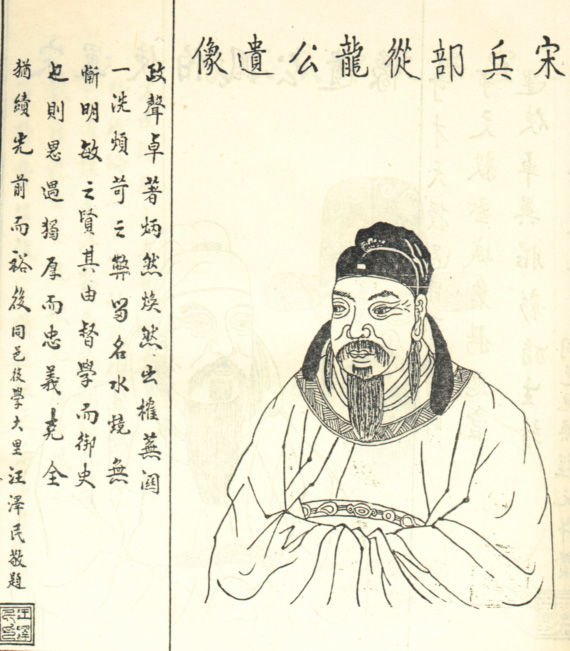 宋兵部從龍公遺像
政聲卓著炳然煥然出榷蕪關
一洗煩苛之弊留名水境無
慚明敏之賢其由督學而御史
也則恩遇獨厚而忠義克全
猶績光前而裕後同邑後學大里汪澤民敬題